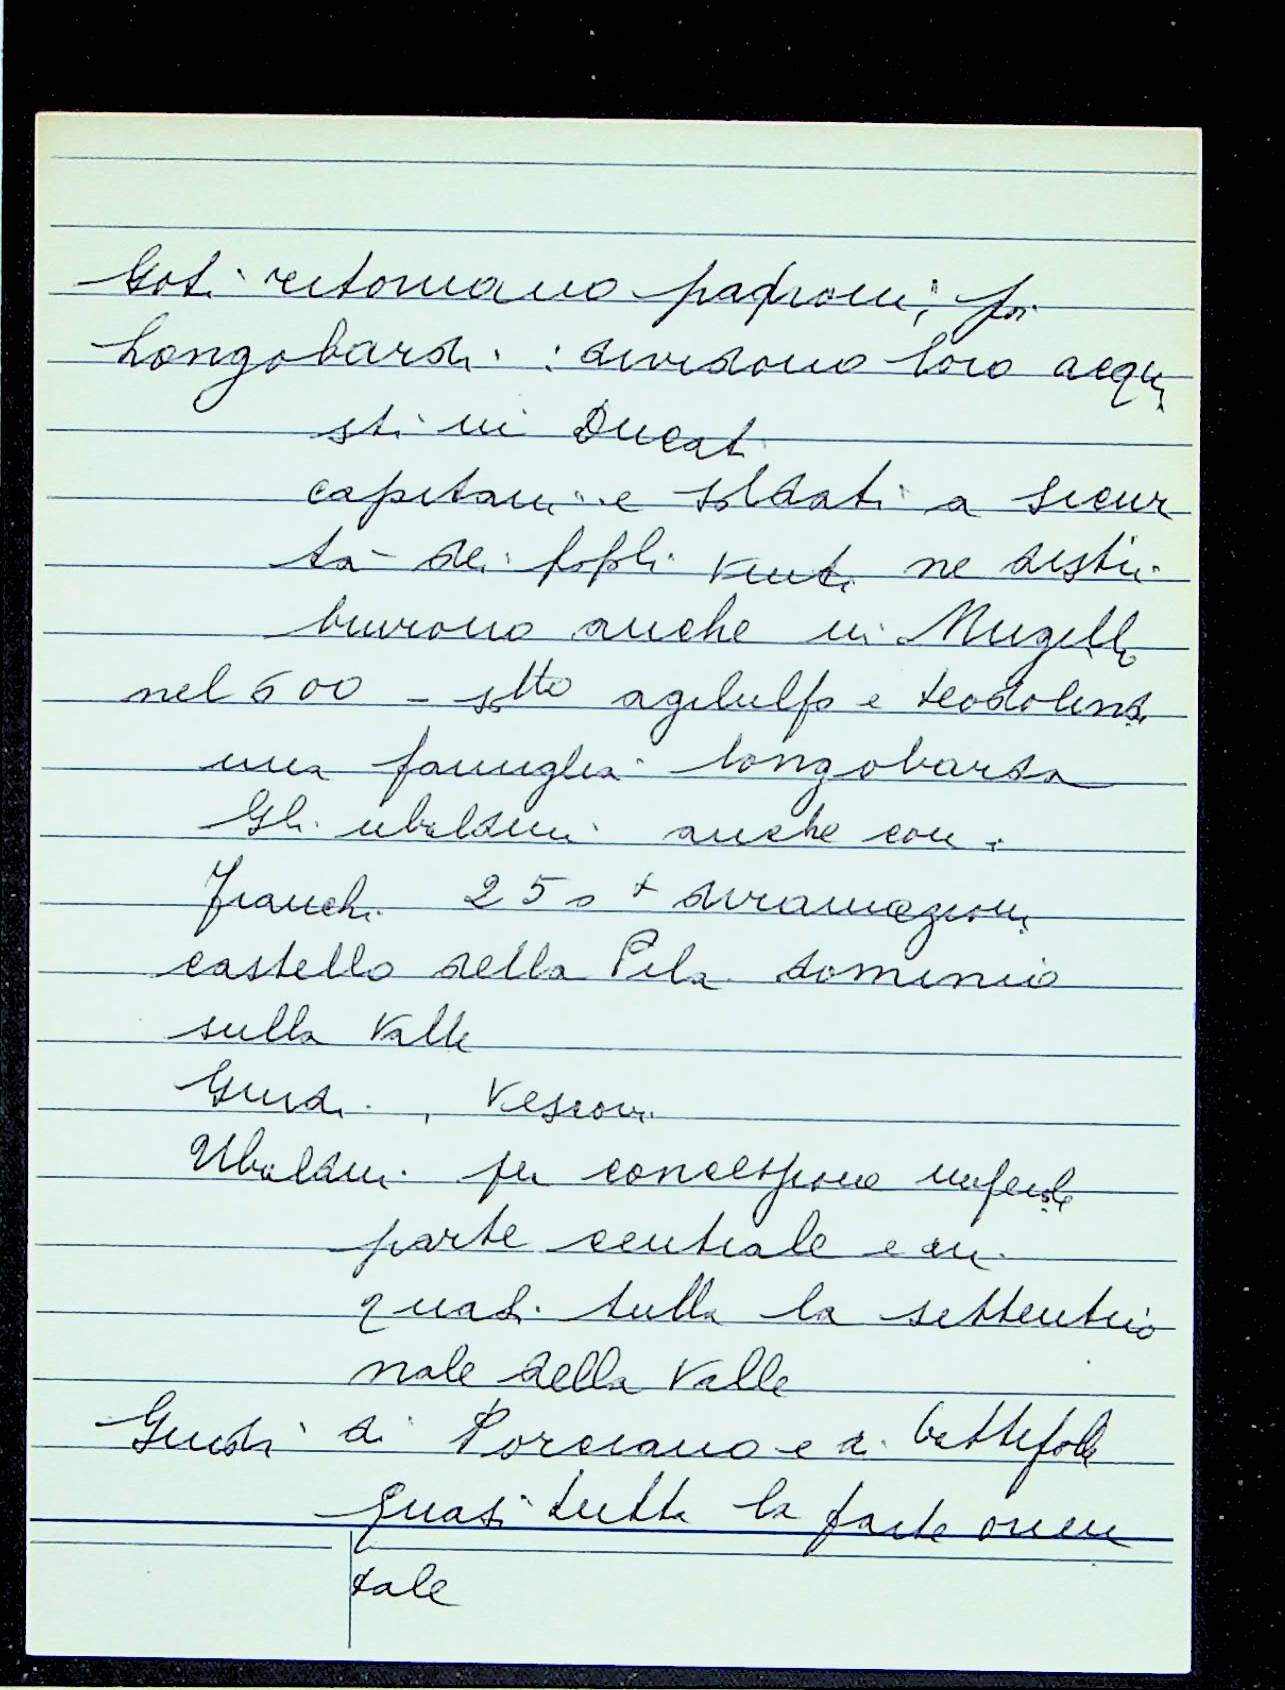 Goti ritornano padroni, poi
Longobardi : dividono loro acqui
sti in Ducati
capitani e soldati a sicur
tà dei popoli vinti ne distri
buirono anche in Mugello
nel 600 - sotto agilulfo e teodolinda
una famiglia longobarda
Gli ubaldini anche con i
Franchi 250 + diramazioni
castello della Pila dominio
sulla Valle
Guidi , Vescovi
Ubaldini per concessione
parte centrale e
quasi tutta la settentrio
nale della Valle
Guidi di Porciano e di battifolle
quasi tutta la parte orien
tale